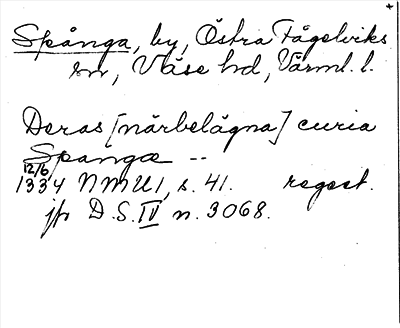 +
Spånga, by, Östra Fågelviks
sn, Väse hd, Värml. l.
Deras [närbelägna] curia
Spanga --
12/6
1334 NMU1, s. 41. regest.
jfr D.S. IV n. 3068.